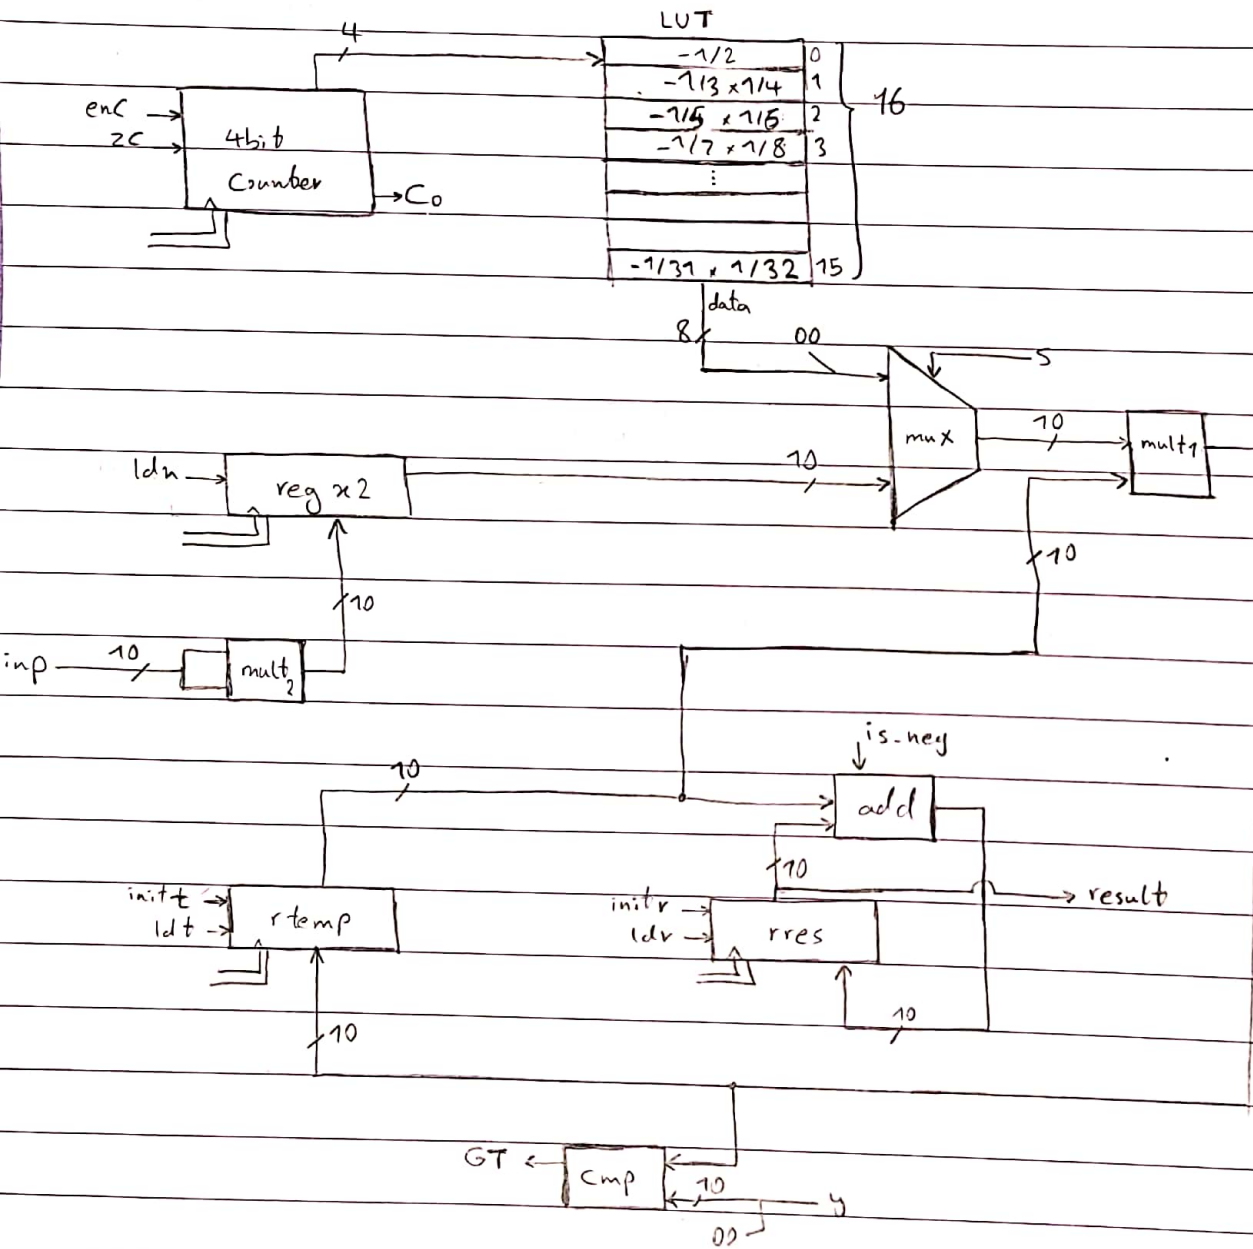 LUT
4
-1/2 0
-1/3 x 1/4 1
-1/5 x 1/6 2
-1/7 x 1/8 3
⋮
-1/31 x 1/32 15
16
enC
zC
4bit
Counter
Co
data
8
00
S
mux
10
mult1
ldn
reg x2
10
10
10
inp
10
mult2
is-neg
10
add
10
result
initt
ldt
rtemp
initr
ldr
rres
10
10
GT
Cmp
10
y
00